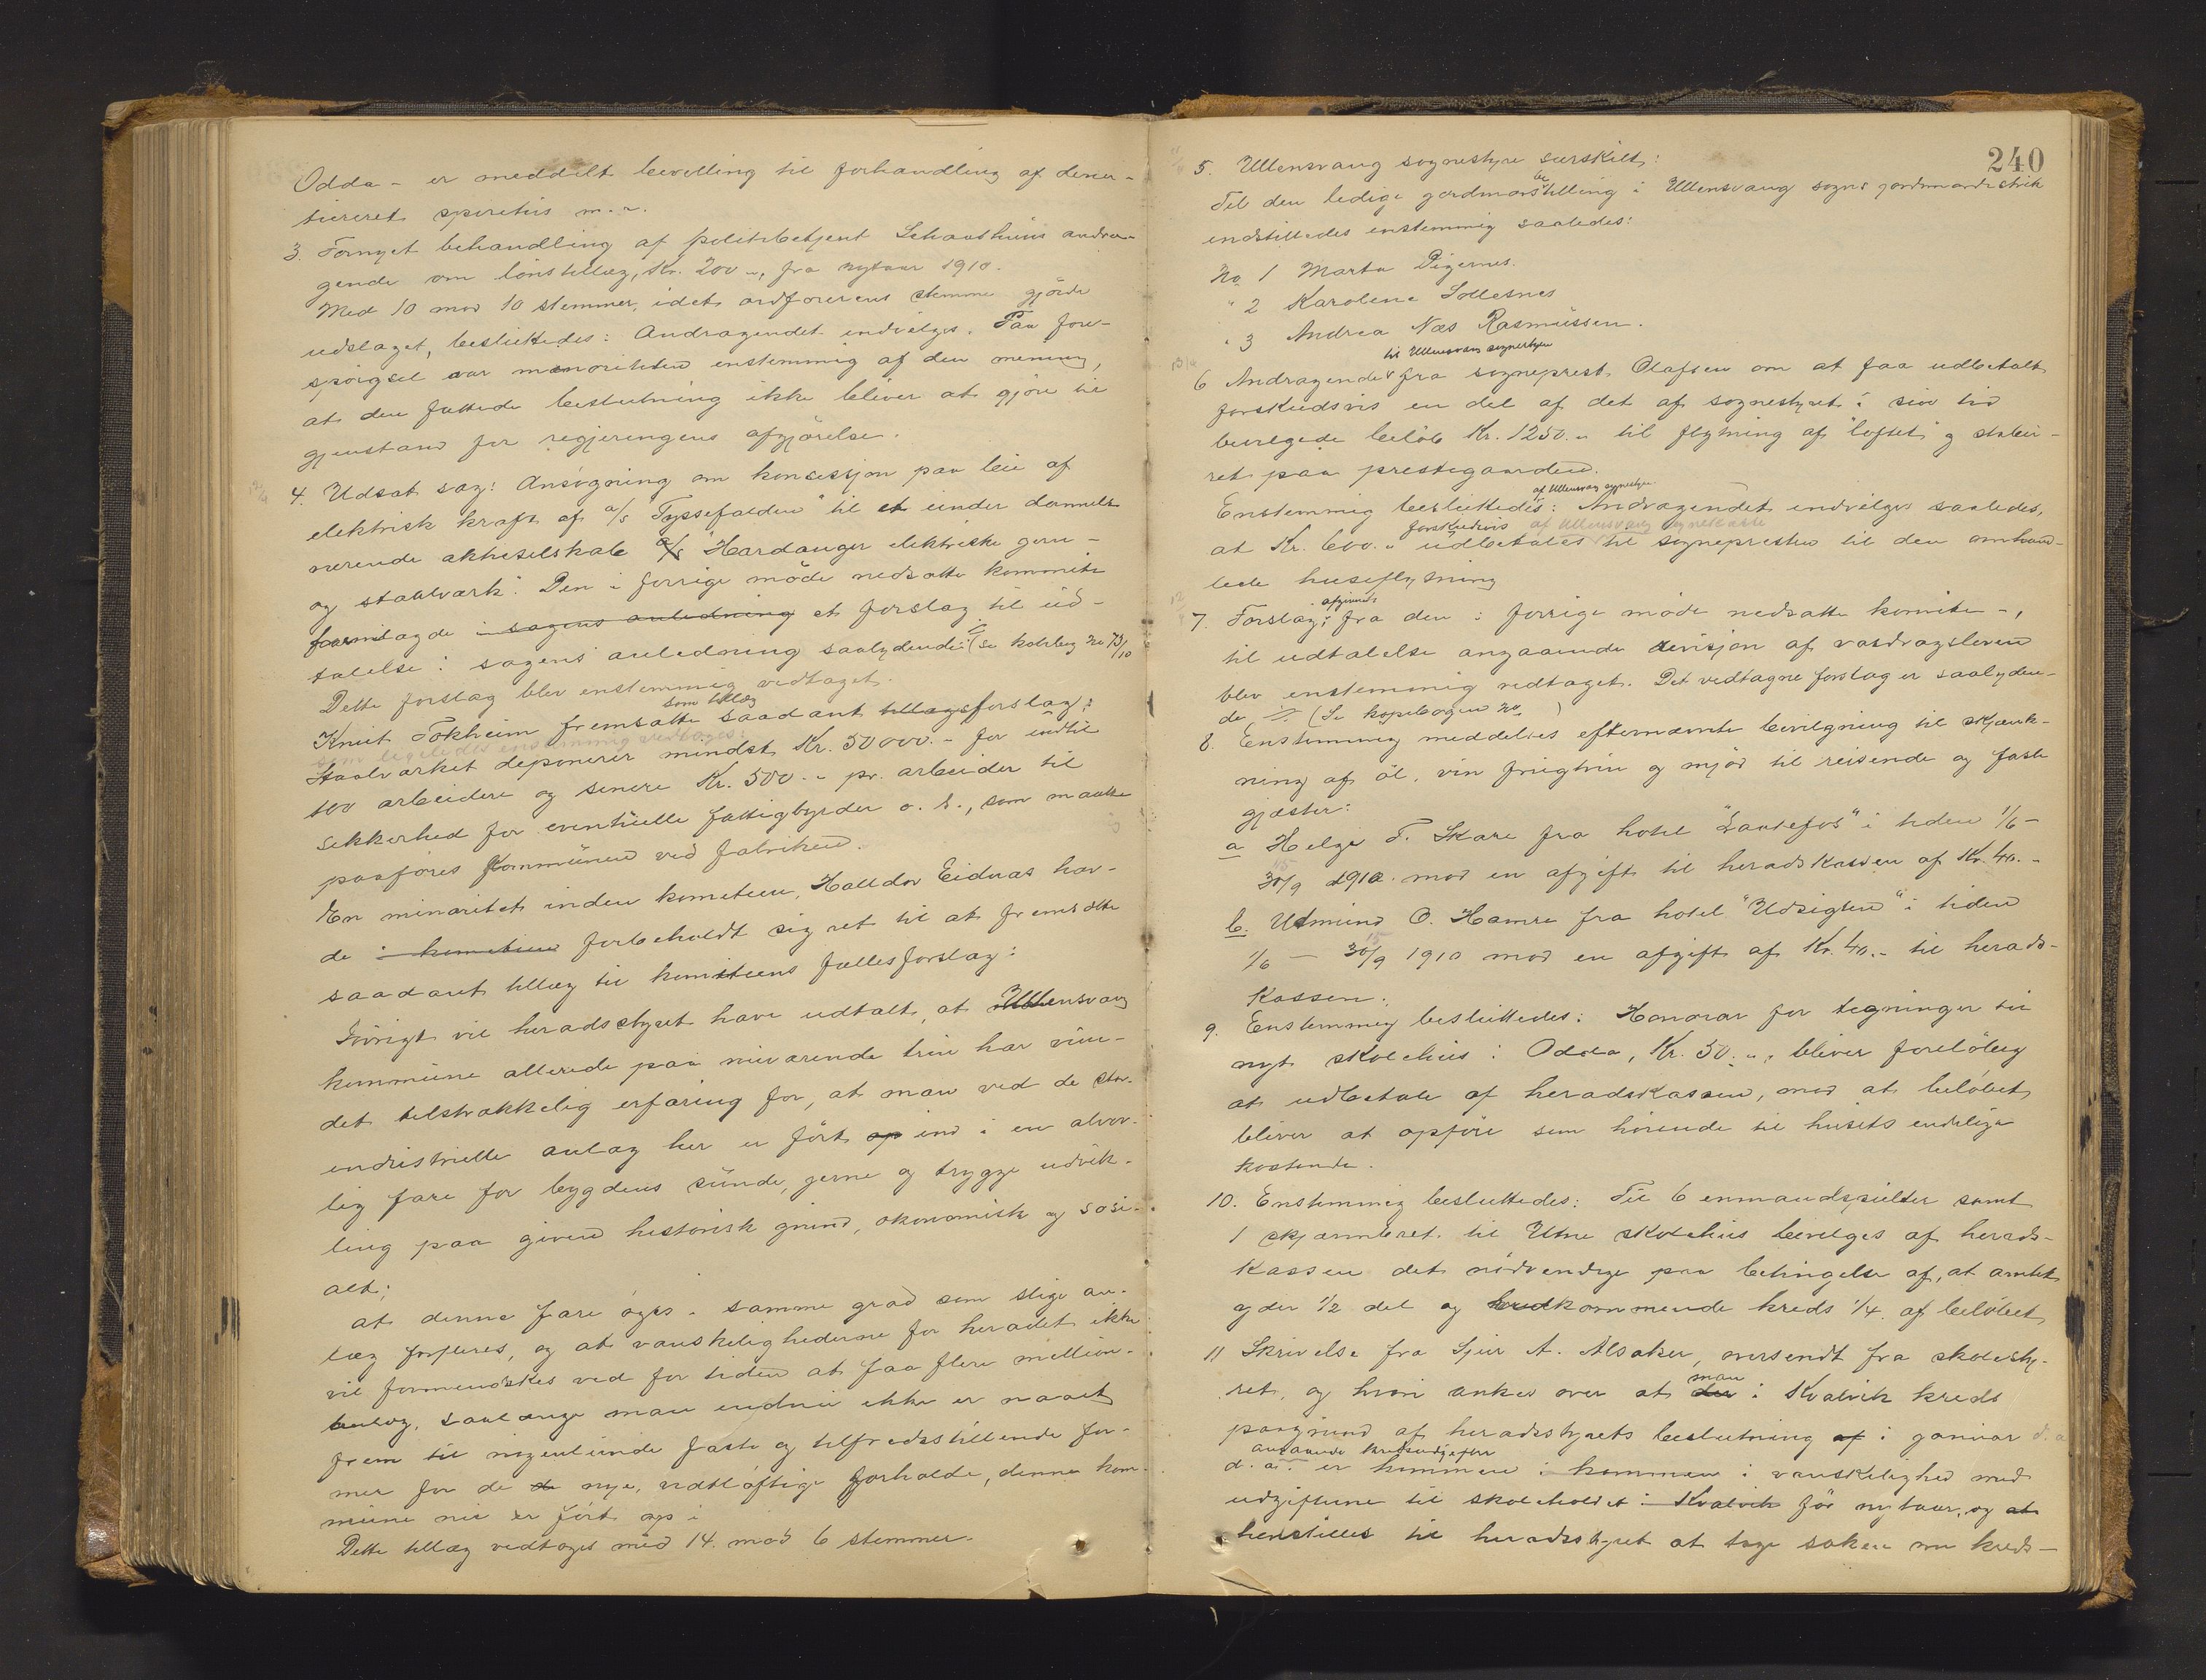 Odda - er meddelt bevilling til forhandling af denu-
tureret spiritus m.v.
3. Fornyet behandling af politibetjent Schaathuns andra-
gende om lönstillæg, Kr. 200 „, fra nytaar 1910.
Med 10 mod 10 stemmer, idet ordförerens stemme gjörde
udslaget, besluttedes: Andragendet indvilges. Paa fore-
spörgsel var minoriteten enstemmig af den mening,
at den fattede beslutning ikke bliver at gjöre til
gjenstand for regjeringens afgjörelse.
4. Udsat sag: Ansögning om konsesjon paa leie af
elektrisk kraft af a/s "Tyssefaldene" til et under dannelse
værende aktieselskab a/s "Hardanger elektriske jern-
og staalværk". Den i forrige möde nedsatte kommite
fremlagde i sagens anledning et forslag til ud-
talelse i sagens anledning saalydende: (Se kobibog No 73/10
Dette forslag blev enstemmig vedtaget.
som tillæg
Knut Tokheim fremsatte saadant tillægsforslag:
som ligeledes enstemmig vedtoges:
Staalværket deponerer mindst Kr. 50000.- for indtil
100 arbeidere og senere Kr. 500.- pr. arbeider til
sikkerhed for eventuelle fattigbyrder o.l., som maatte
paaföres kommunen ved fabriken.
En minoritet inden komiteen, Halldor Eidnæs hav-
de i komiteen forbeholdt sig ret til at fremsætte
saadant tillæg til komiteens fællesforslag:
Iövrigt vil heradsstyret have udtalt, at Ullensvang
kommune allerede paa nuværende trin har vun-
det tilstrækkelig erfaring for, at man ved de stor-
industrielle anlæg her er fört op ind i en alvor-
lig fare for bygdens sunde, jevne og trygge udvik-
ling paa given historisk grund, økonomisk og sosi-
alt;
at denne fare öges i samme grad som slige an-
læg forfleres, og at vanskelighederne for heradet ikke
vil formindskes ved for tiden at faa flere million-
anlæg, saalænge man endnu ikke er naaet
frem til nogenlunde faste og tilfredsstillende for-
mer for de de nye, vidtlöftige forholde, denne kom-
mune nu er fört op i
Dette tillæg vedtoges med 14 mod 6 stemmer.
240
5. Ullensvang sognestyre særskilt:
Til den ledige jordmorbestilling i Ullensvang sogns jordmordistrik
indstilledes enstemmig saaledes:
No 1 Marta Digernes.
" 2 Karoline Lollesnes
" 3 Andrea Næs Rasmussen.
til Ullensvang sognestyre
6 Andragende fra sogneprest Olafsen om at faa udbetalt
forskudsvis en del af det af sognestyret i sin tid
bevilgede belöb Kr. 1250.„ til flytning af "loftet" og stabu-
ret paa prestegaarden.
af Ullensvang sognestyre
Enstemmig besluttedes: Andragendet indvilges saaledes,
forskudsvis af Ullensvang sognekasse
at Kr. 600.„ udbetales til sognepresten til den omhand-
lede huseflytning
afgivende
7. Forslag fra den i forrige möde nedsatte komite -,
til udtalelse angaaende revisjon af vasdragsloven
blev enstemmig vedtaget. Det vedtagne forslag er saalyden-
de, (Se kopibogen No )
8. Enstemmig meddeltes efternævnte bevilgning til skjænk-
ning af öl, vin frugtvin og mjöd til reisende og faste
gjæster:
a Helge T. Skare fra hotel "Laatefos" i tiden 1/6 -
30/9 1910 mod en afgift til heradskassen af Kr. 40.-
b. Utmund O. Hamre fra hotel "Udsigten" i tiden
1/6 - 30/9 1910 mod en afgift af Kr. 40.- til herads-
kassen.
9. Enstemmig besluttedes: Honorar for tegninger til
nyt skolehus i Odda, Kr. 50.„, bliver foreløbig
at udbetale af heradskassen, mod at belöbet
bliver at opföre som hörende til husets endelige
kostende.
10. Enstemmig besluttedes: Til 6 enmandspulter samt
1 skjermbret til Utne skolehus bevilges af herads-
kassen det nödvendige paa betingelse af, at amtet
yder 1/2 del og vedkommende kreds 1/4 af belöbet
11 Skrivelse fra Sjur A. Alsaker, oversendt fra skolesty-
man
ret, og hvori ankes over at der i Kvalvik kreds
paagrund af heradsstyrets beslutning af i januar d. a
angaaende kredsudgifter
d. a. er kommen i kommen i vanskelighed med
udgifterne til skoleholdet i Kvalvik för nytaar, og at
henstilles til heradsstyret at tage saken om kreds-